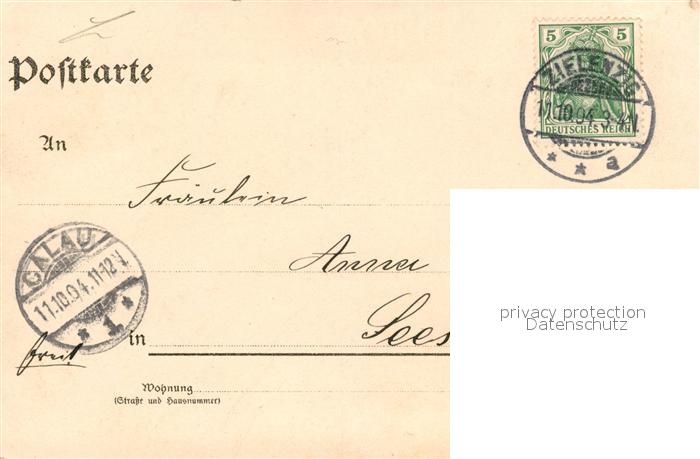 Postkarte
5 5
ZIELENZIG
11.10.04.3-4N.
DEUTSCHES REICH
* * a
An
Fräulein
CALAU
11.10.04.11-12V.
* 1 *
Anna
in Sees
privacy protection
Datenschutz
Wohnung
(Straße und Hausnummer)